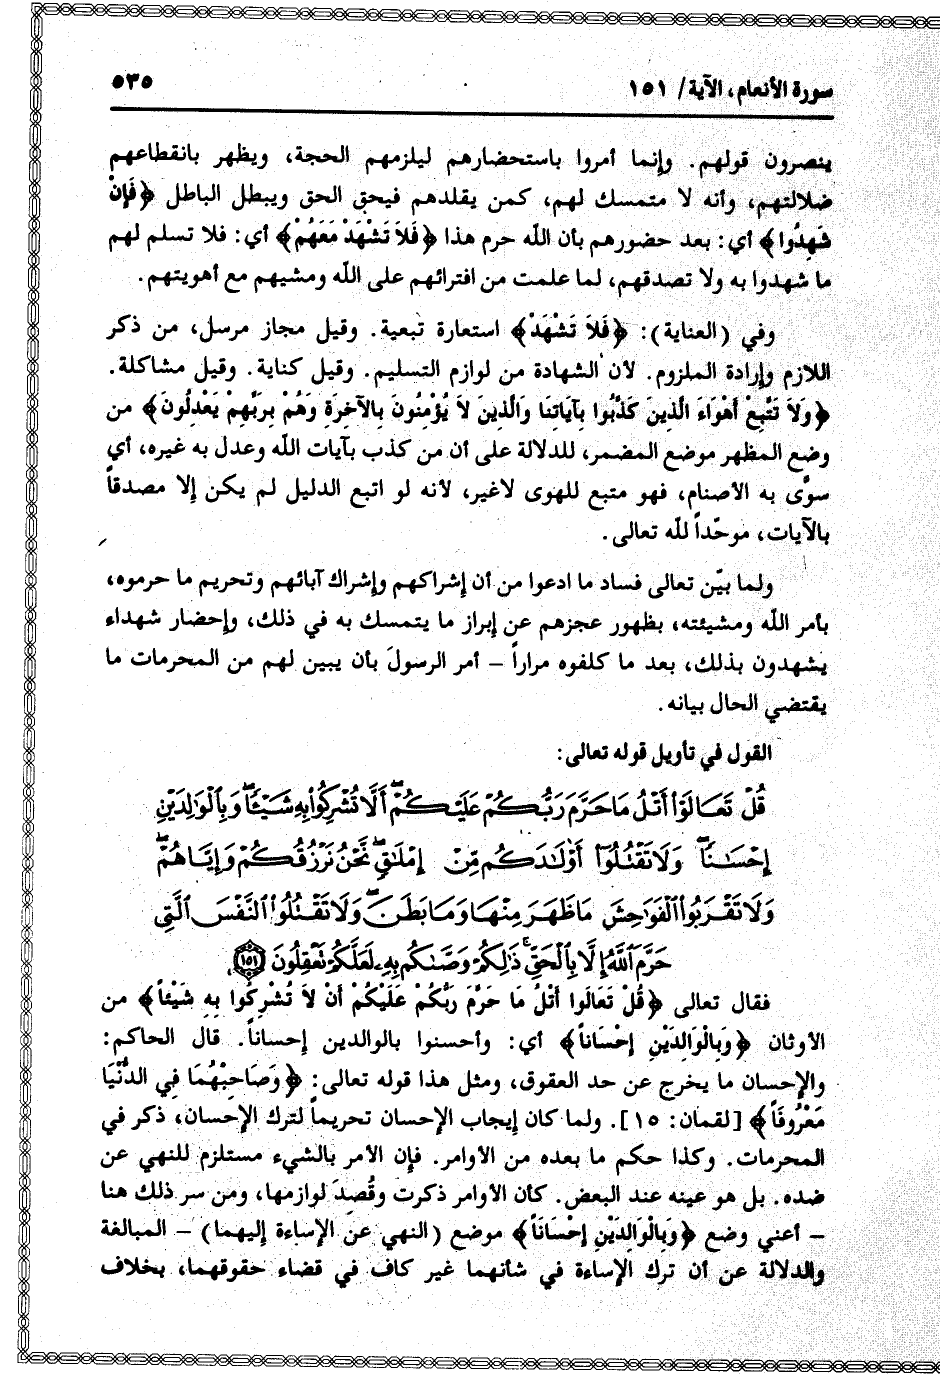 سورة الأنعام، الآية/ ١٥١
٥٣٥
ينصرون قولهم. وإنما أمروا باستحضارهم ليلزمهم الحجة، ويظهر بانقطاعهم
ضلالتهم، وأنه لا متمسك لهم، كمن يقلدهم فيحق الحق ويبطل الباطل ﴿فَإِنْ
شَهِدُوا﴾ أي: بعد حضورهم بأن اللّه حرم هذا ﴿فَلاَ تَشْهَدْ مَعَهُمْ﴾ أي: فلا تسلم لهم
ما شهدوا به ولا تصدقهم، لما علمت من افترائهم على اللّه ومشيهم مع أهويتهم.
وفي (العناية): ﴿فَلاَ تَشْهَدْ﴾ استعارة تبعية. وقيل مجاز مرسل، من ذكر
اللازم وإرادة الملزوم. لأن الشهادة من لوازم التسليم. وقيل كناية. وقيل مشاكلة.
﴿وَلاَ تَتَّبِعْ أَهْوَاءَ الَّذينَ كَذَّبُوا بِآيَاتِنَا وَالَّذِينَ لاَ يُؤْمِنُونَ بِالآخِرَةِ وَهُمْ بِرَبِّهِمْ يَعْدِلُونَ﴾ من
وضع المظهر موضع المضمر، للدلالة على أن من كذب بآيات اللّه وعدل به غيره، أي
سوَّى به الأصنام، فهو متبع للهوى لاغير، لأنه لو اتبع الدليل لم يكن إلا مصدقاً
بالآيات، موحّداً للّه تعالى.
ولما بيّن تعالى فساد ما ادعوا من أن إشراكهم وإشراك آبائهم وتحريم ما حرموه،
بأمر اللّه ومشيئته، بظهور عجزهم عن إبراز ما يتمسك به في ذلك، وإحضار شهداء
يشهدون بذلك، بعد ما كلفوه مراراً – أمر الرسولَ بأن يبين لهم من المحرمات ما
يقتضي الحال بيانه.
القول في تأويل قوله تعالى:
قُلۡ تَعَالَوۡاْ أَتۡلُ مَاحَرَّمَ رَبُّكُمۡ عَلَيۡكُمۡۖ أَلَّا تُشۡرِكُواْ بِهِۦ شَيۡـٔٗاۖ وَبِٱلۡوَٰلِدَيۡنِ
إِحۡسَٰنٗاۖ وَلَا تَقۡتُلُوٓاْ أَوۡلَٰدَكُم مِّنۡ إِمۡلَٰقٖۖ نَّحۡنُ نَرۡزُقُكُمۡ وَإِيَّاهُمۡۖ
وَلَا تَقۡرَبُواْ ٱلۡفَوَٰحِشَ مَا ظَهَرَ مِنۡهَا وَمَا بَطَنَۖ وَلَا تَقۡتُلُواْ ٱلنَّفۡسَ ٱلَّتِي
حَرَّمَ ٱللَّهُ إِلَّا بِٱلۡحَقِّۚ ذَٰلِكُمۡ وَصَّىٰكُم بِهِۦ لَعَلَّكُمۡ تَعۡقِلُونَ ١٥١
فقال تعالى ﴿قُلْ تَعَالَوا أَتْلُ مَا حَرَّمَ رَبُّكُمْ عَلَيْكُمْ أَنْ لاَ تُشْرِكُوا بِهِ شَيْئاً﴾ من
الأوثان ﴿وَبِالْوَالِدَيْنِ إِحْسَاناً﴾ أي: وأحسنوا بالوالدين إحساناً. قال الحاكم:
والإحسان ما يخرج عن حد العقوق، ومثل هذا قوله تعالى: ﴿وَصَاحِبْهُمَا فِي الدُّنْيَا
مَعْرُوفَاً﴾ [لقمان: ١٥]. ولما كان إيجاب الإحسان تحريماً لترك الإحسان، ذكر في
المحرمات. وكذا حكم ما بعده من الأوامر. فإن الأمر بالشيء مستلزم للنهي عن
ضده. بل هو عينه عند البعض. كأن الأوامر ذكرت وقُصِدَ لوازمها، ومن سر ذلك هنا
– أعني وضع ﴿وَبِالْوَالِدَيْنِ إِحْسَانَاً﴾ موضع (النهي عن الإساءة إليهما) – المبالغة
والدلالة عن أن ترك الإساءة في شأنهما غير كاف في قضاء حقوقهما، بخلاف